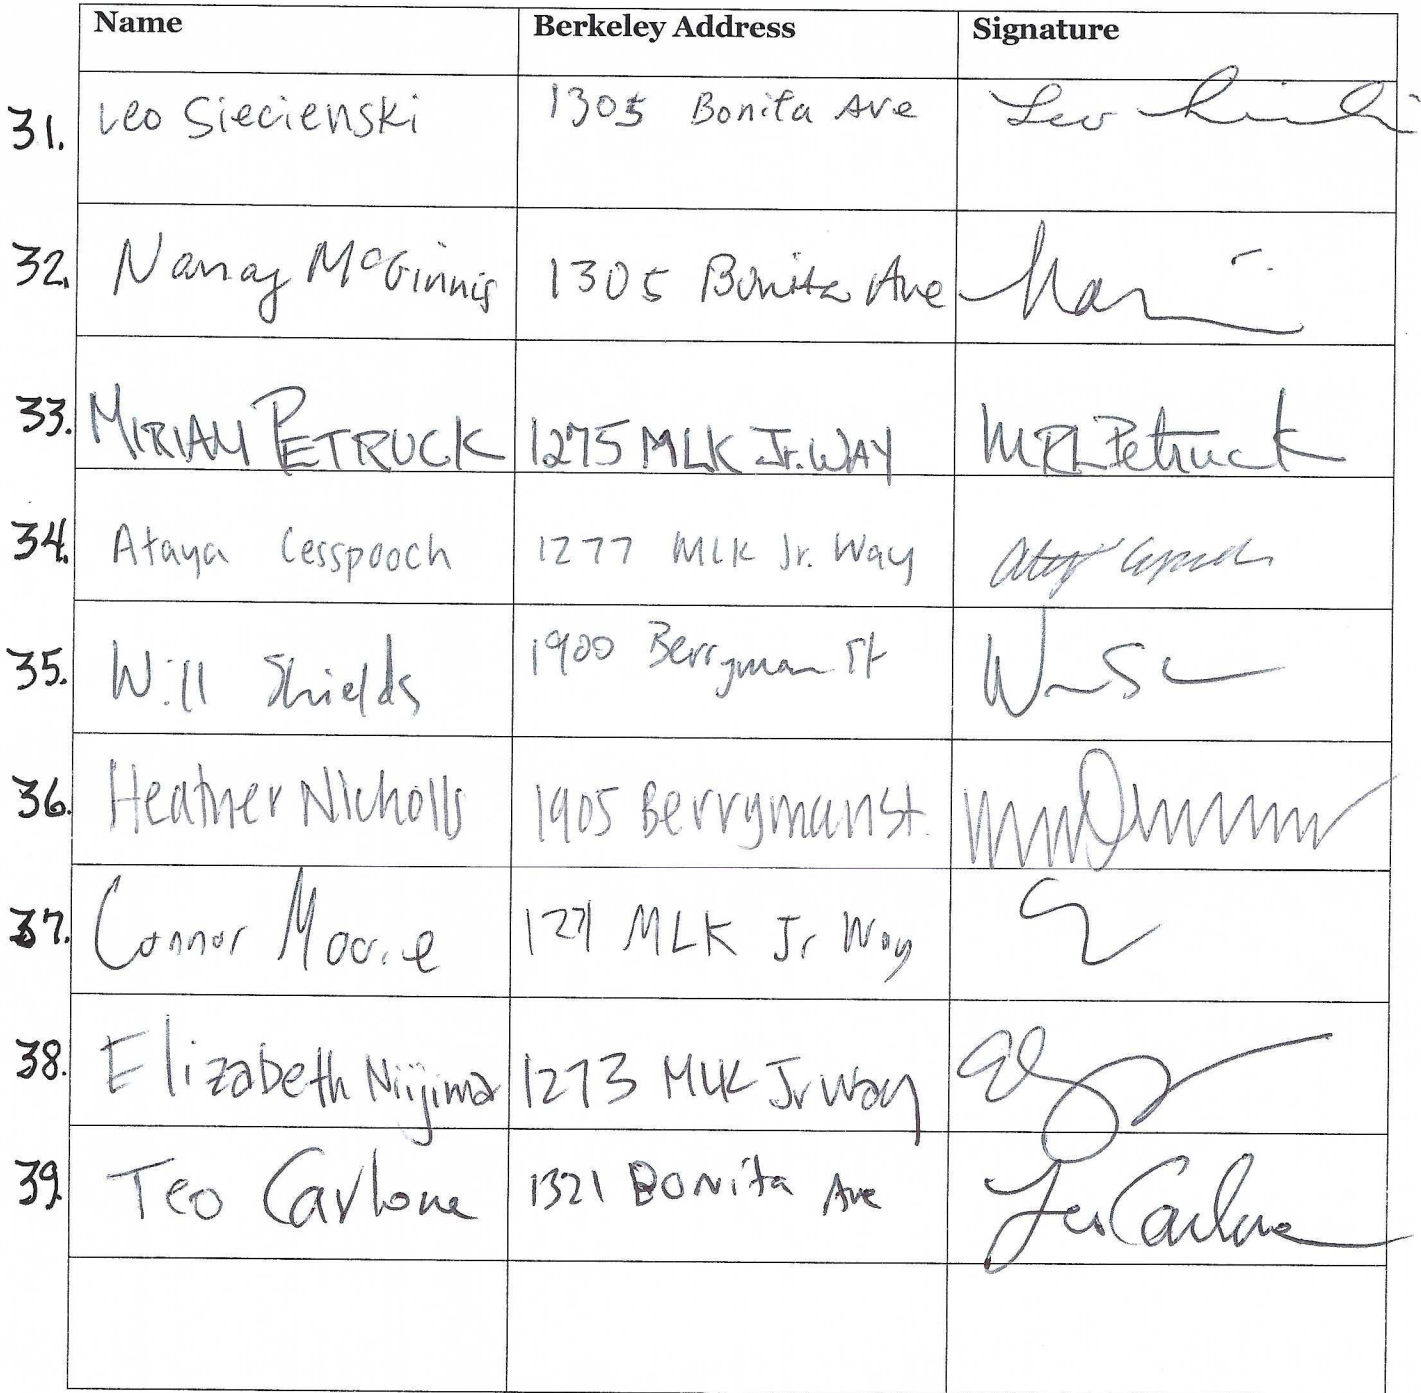 Name Berkeley Address Signature
31. Leo Siecienski 1305 Bonita Ave Leo
32. Nancy McGinnis 1305 Bonita Ave
33. MIRIAM PETRUCK 1275 MLK Jr. WAY MRL Petruck
34. Ataya Cesspooch 1277 MLK Jr. Way
35. Will Shields 1900 Berryman St
36. Heather Nicholls 1905 Berryman St.
37. Connor Moore MLK Jr Way
38. Elizabeth Niijima 1273 MLK Jr Way
39. Teo Carlone 1321 Bonita Ave Teo Carlone